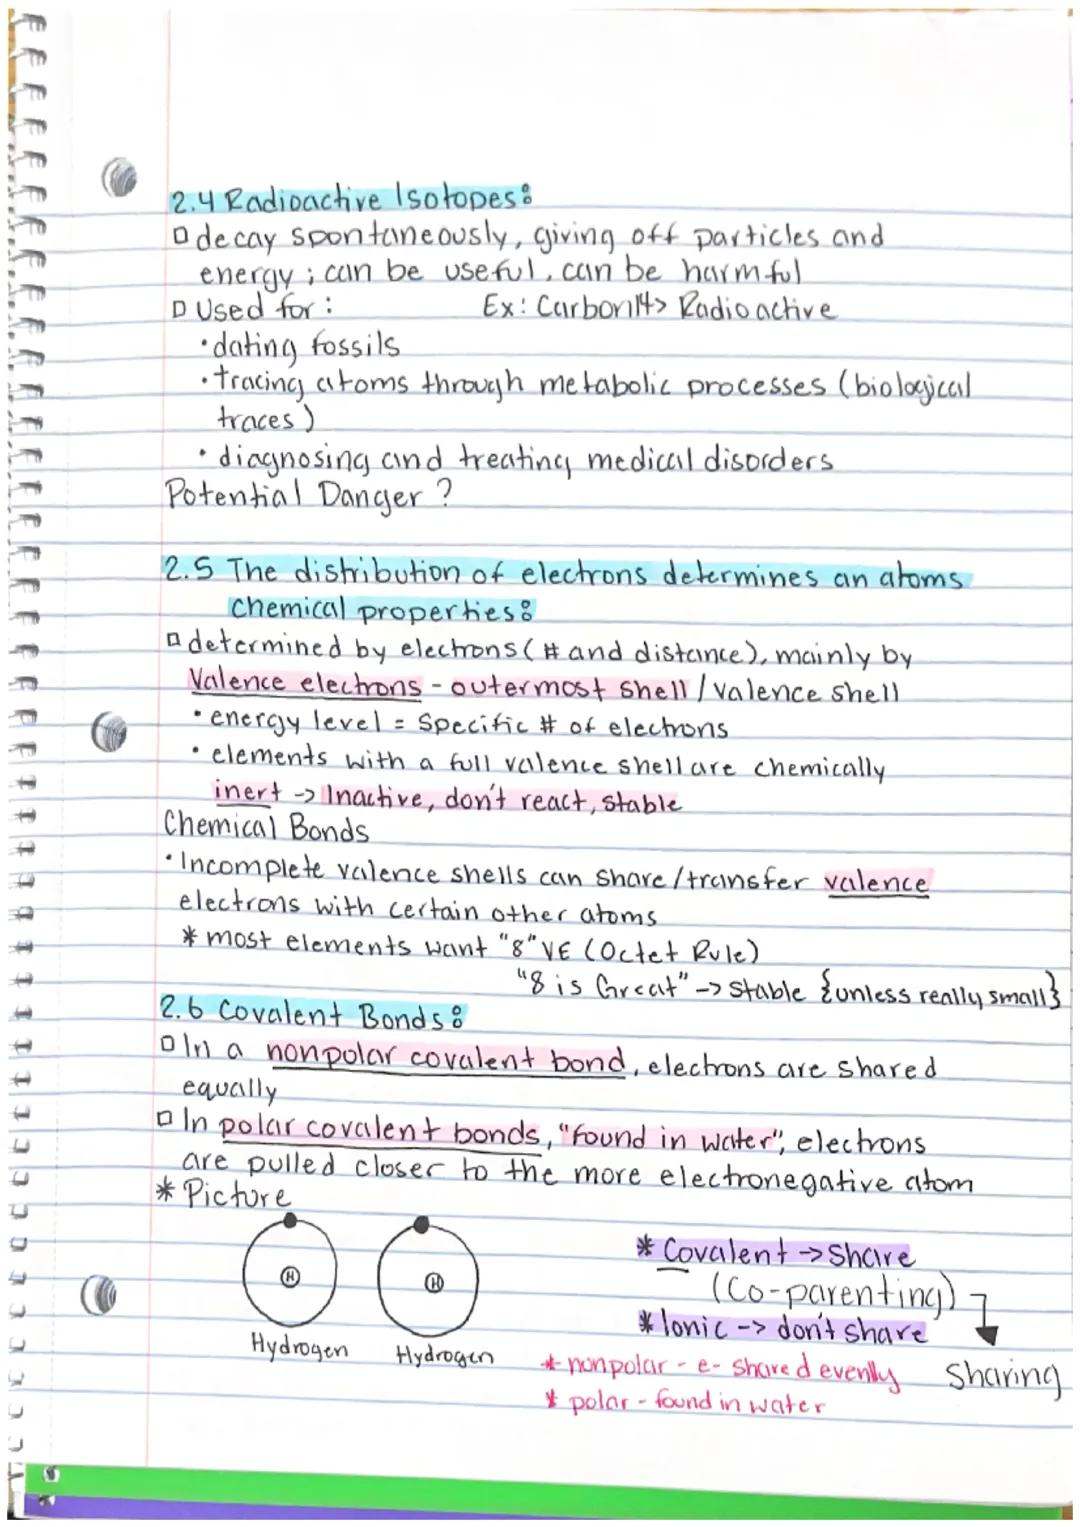 2.4 Radioactive Isotopes:
▫ decay spontaneously, giving off particles and
energy; can be useful, can be harmful
▫ Used for: Ex: Carbon14> Radioactive
• dating fossils
• tracing atoms through metabolic processes (biological
traces)
• diagnosing and treating medical disorders
Potential Danger?
2.5 The distribution of electrons determines an atoms
Chemical properties:
▫ determined by electrons (# and distance), mainly by
Valence electrons - outermost shell / valence shell
• energy level = Specific # of electrons
• elements with a full valence shell are chemically
inert -> Inactive, don't react, stable
Chemical Bonds
• Incomplete valence shells can share/transfer valence
electrons with certain other atoms
* most elements want "8" VE (Octet Rule)
"8 is Great" -> stable {unless really small}
2.6 Covalent Bonds:
▫ In a nonpolar covalent bond, electrons are shared
equally
▫ In polar covalent bonds, "found in water", electrons
are pulled closer to the more electronegative atom
* Picture
H H
Hydrogen Hydrogen
* Covalent -> Share
(Co-parenting)
* Ionic -> don't share
Sharing
* nonpolar - e- shared evenly
* polar - found in water